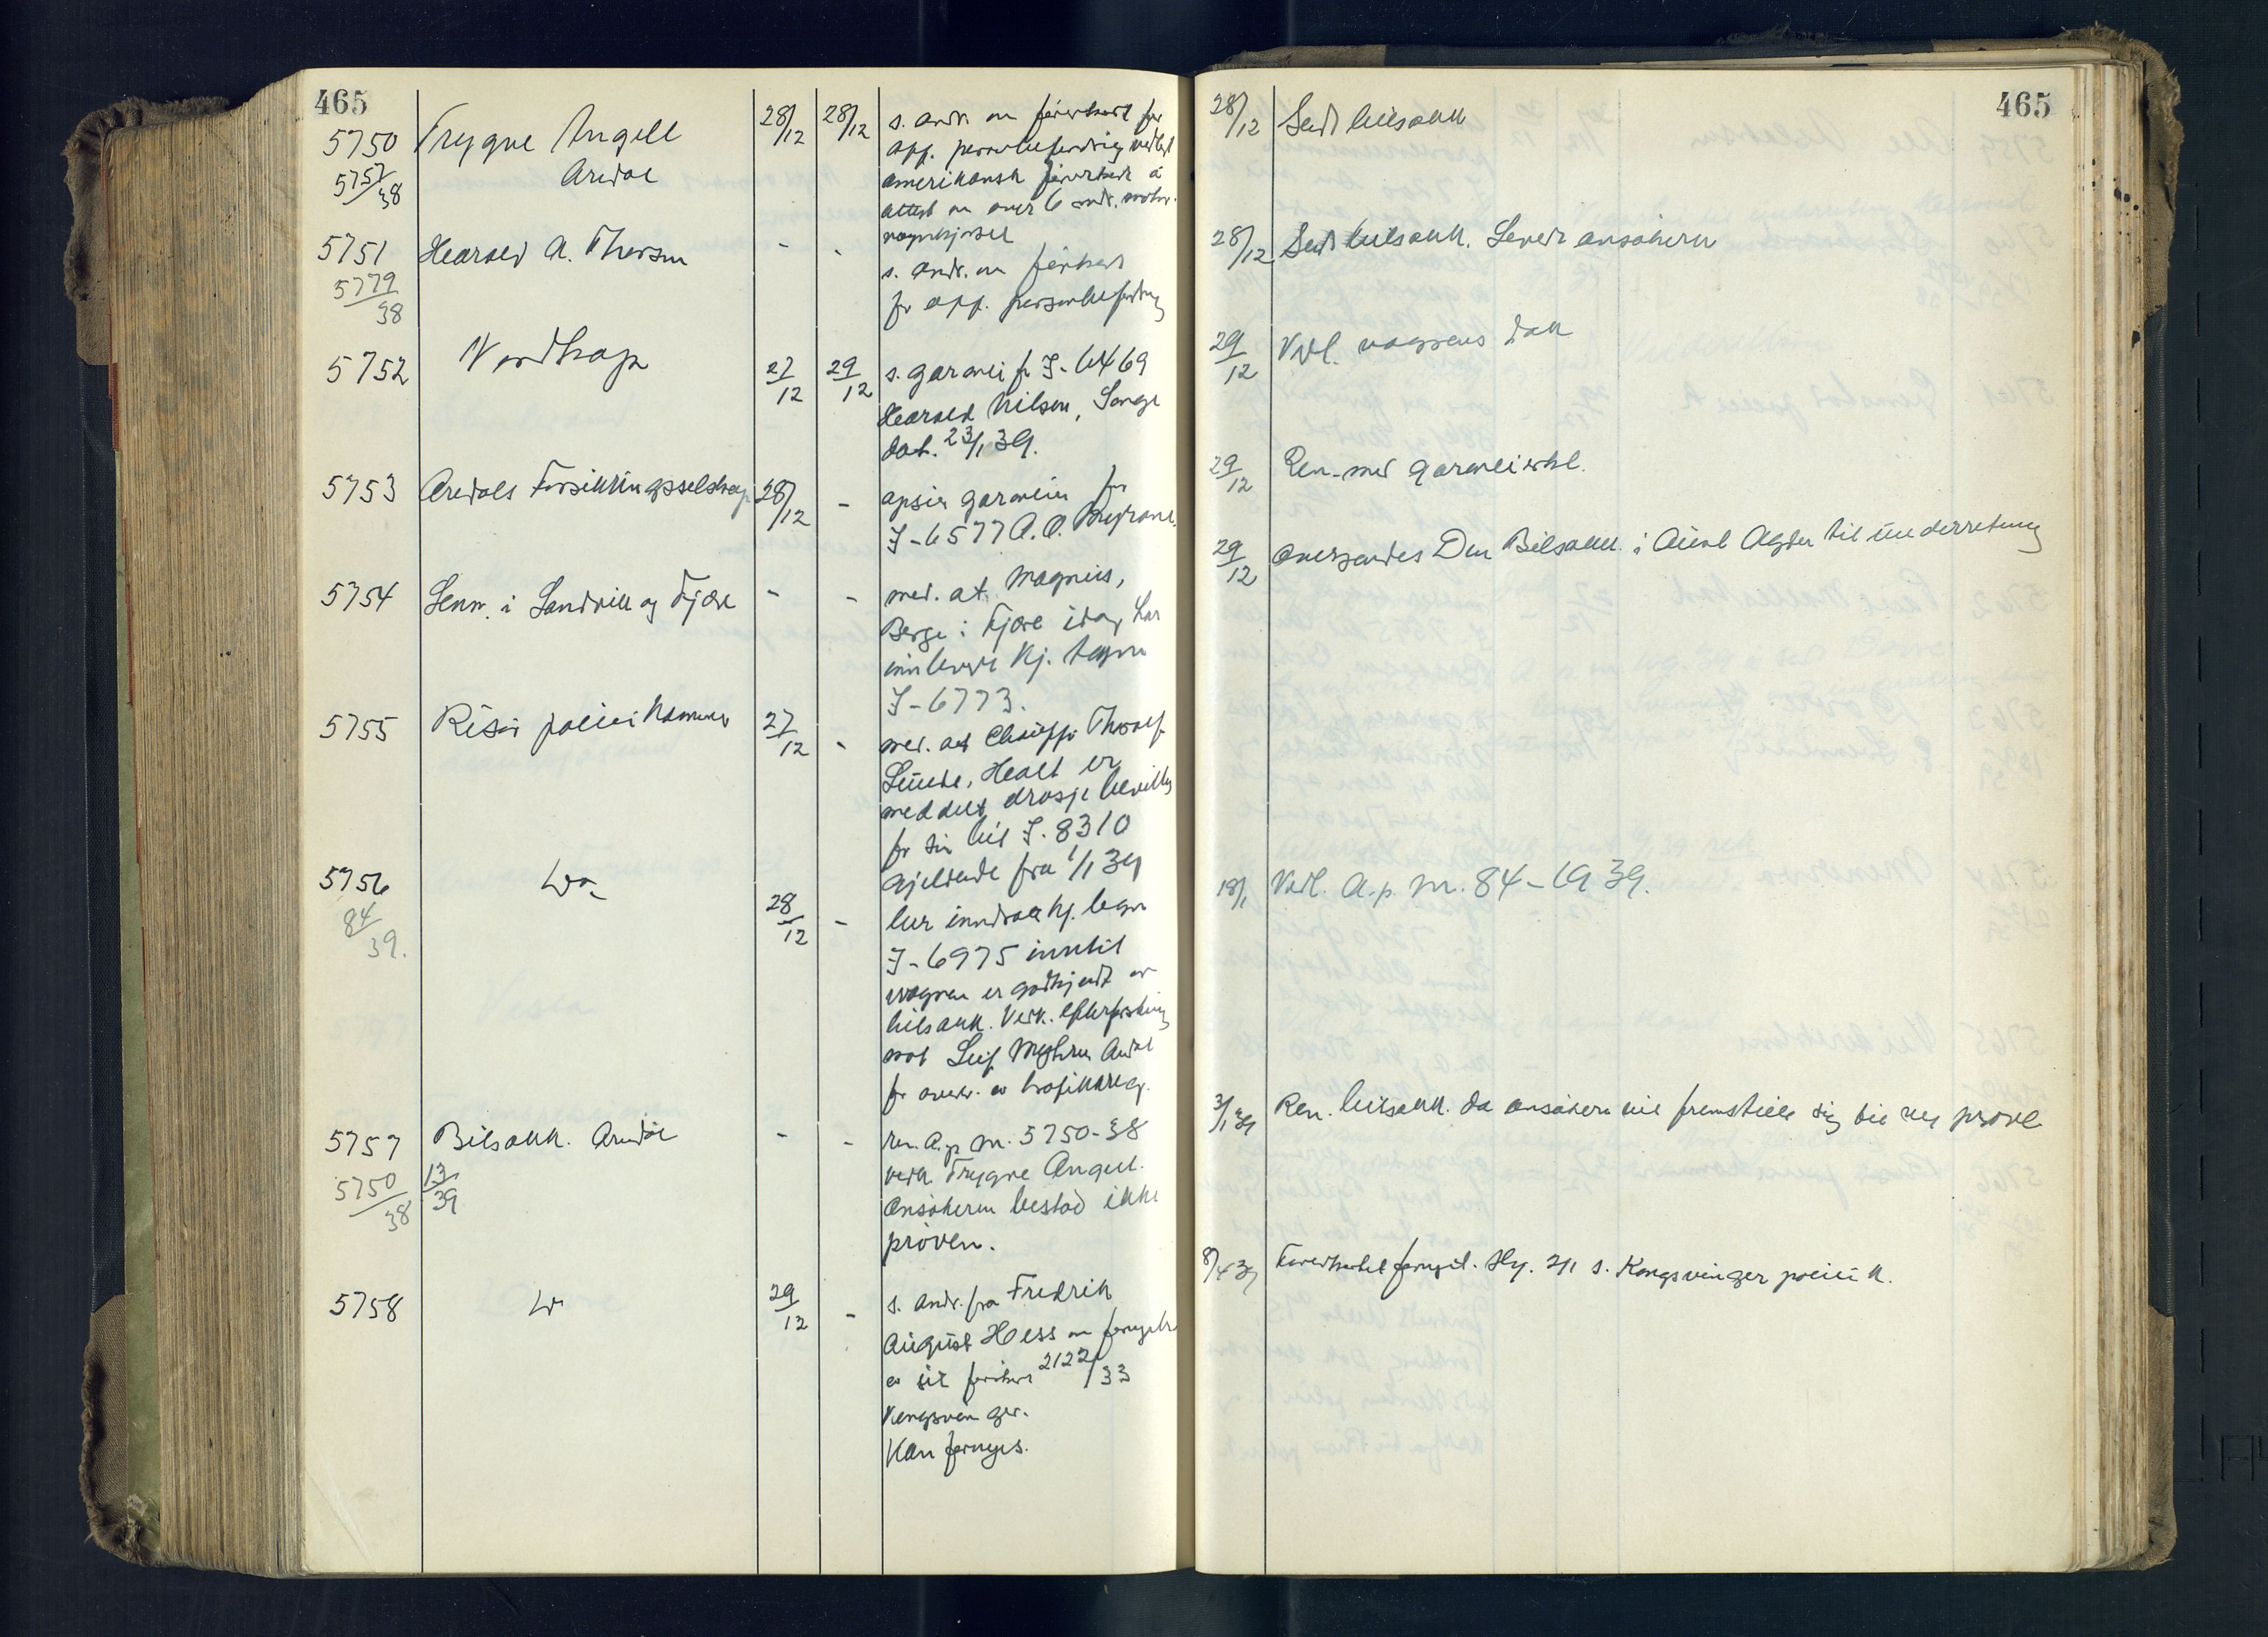 465
5750 Trygve Angell 28/12 28/12 s. andr. om førerkort for
5757/38 Arendal off. personbefordring vedlagt
amerikansk førerkort å
attest om over 6 mdr. motor-
vognkjørsel
28/12 Sendt bilsakk
5751 Harald A. Thorsen - - s. andr. om førerkort
5779/38 for off. personbefordring
28/12 Sendt bilsakk. Levert ansøkeren
5752 Nordkap 27/12 29/12 s. garanti for I-6469
Harald Nilsen, Songe
dat. 23/1 39.
29/12 Vedl. vognens dok
5753 Arendals Forsikringsselskap 28/12 - opsier garantien for
I-6577 A. O.
29/12 Ren. med garantierkl.
5754 Lensm. i Landvik og Fjære - - med. at Magnus
Berge i Fjære idag har
innlevert kj. tegn
I-6773.
29/12 Oversendes Den Bilsakk. i Aust Agder til underretning
5755 Risør politikammer 27/12 - med. at Chauffør Thorolf
Lunde, Holt er
meddelt drosjebevilling
for sin bil I-8310
gjeldende fra 1/1 39
5756 Do. 28/12 - ber inndratt kj. tegn
84/39. I-6975 inntil
vognen er godkjendt av
bilsakk. Verk. efterforskning
mot Leif Myhren Arendal
for overtr. av trafikkreg.
18/1 Vedl. A.p. nr. 84-1939.
5757 Bilsakk. Arendal - - Ren. A.p. nr. 5750-38
5750/38 13/39 vedk. Trygve Angell.
Ansøkeren bestod ikke
prøven.
3/1 39 Ren. bilsakk. da ansøkeren vil fremstille sig til ny prøve
5758 Do 29/12 - s. andr. fra Fredrik
August Hess om fornyelse
av sit førerkort 2122/33
Kongsvinger.
Kan fornyes.
8/4 39 Førerkortet fornyet. Skr. 2/1 s. Kongsvinger politi k.
465